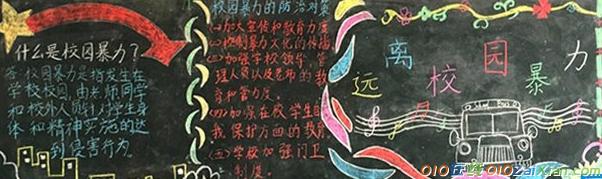 什么是校园暴力?
答:校园暴力是指发生在
学校校园,由老师同学
和校外人员针对学生身
体和精神实施的达
到侵害行为。
校园暴力的防治对策
(一)加大宣传和教育力度
(二)控制暴力文化的传播
(三)加强学校领导、管
理人员以及老师的教
育和管力度。
(四)加强在校学生自
我保护方面的教育
(五)学校加强门卫
制度。
远离校园暴力
010在线010zaixian.com